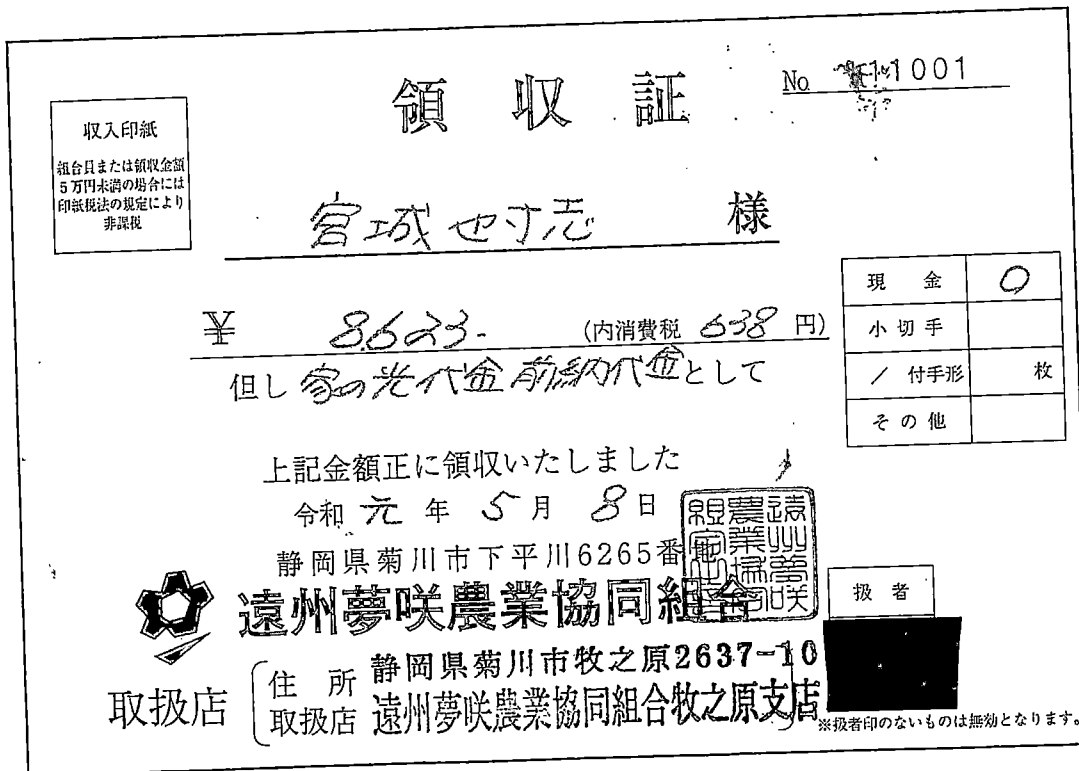 領収証
No 11001
収入印紙
組合員または領収金額
5万円未満の場合には
印紙税法の規定により
非課税
宮城 也寸志 様
¥ 8,623- (内消費税 638 円)
但し 家の光代金 前納代金として
現金 ○
小切手
/ 付手形 枚
その他
上記金額正に領収いたしました
令和 元 年 5 月 8 日
静岡県菊川市下平川6265番地
遠州夢咲農業協同組合
扱者
取扱店
住所 静岡県菊川市牧之原2637-10
取扱店 遠州夢咲農業協同組合牧之原支店
※扱者印のないものは無効となります。